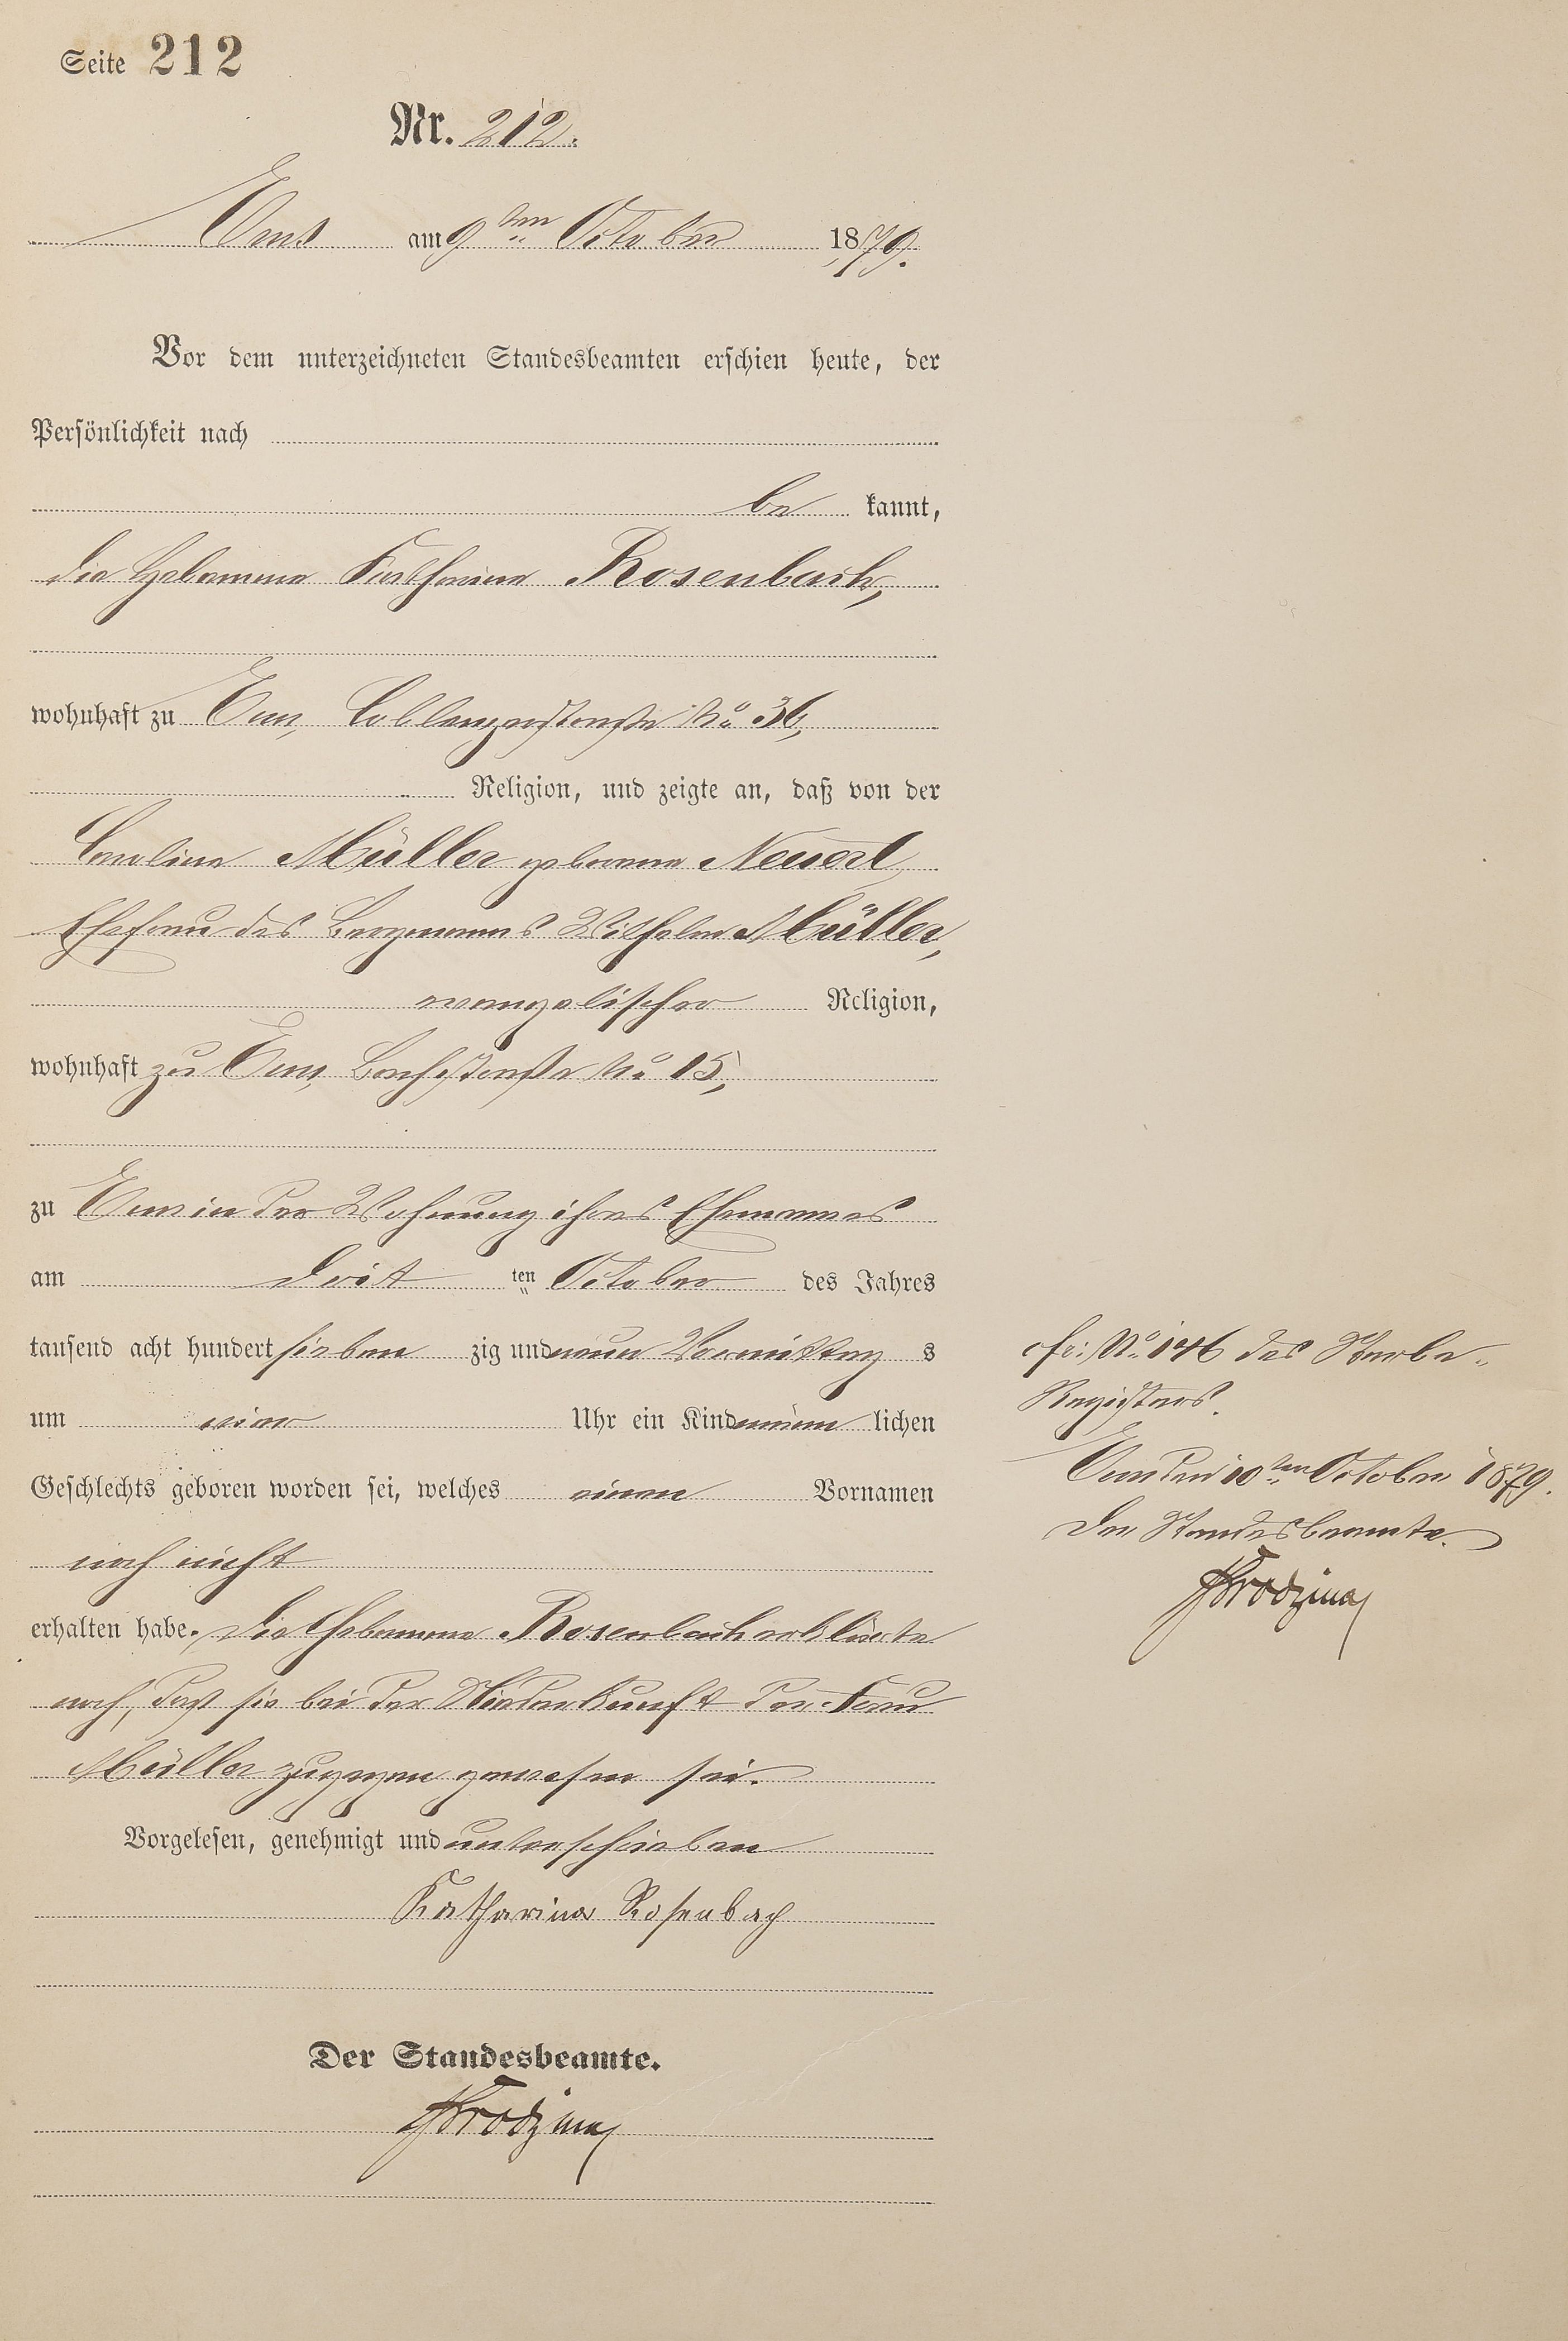 Seite 212
Nr. 212.
Ems am 9ten October 1879.
Vor dem unterzeichneten Standesbeamten erschien heute, der
Persönlichkeit nach
be kannt,
die Hebamme Katharina Rosenbach,
wohnhaft zu Ems, Coblenzerstraße No 36,
Religion, und zeigte an, daß von der
Caroline Müller geborene Neuert,
Ehefrau des Bergmanns Wilhelm Müller,
evangelischer Religion,
wohnhaft zu Ems, Bachstraße No 15,
zu Ems in der Wohnung ihres Ehemannes
am dritten October des Jahres
tausend acht hundert sieben zig und neun Vormittag s
um vier Uhr ein Kind männ lichen
Geschlechts geboren worden sei, welches einen Vornamen
noch nicht
erhalten habe. Die Hebamme Rosenbach erklärte
noch, daß sie bei der Niederkunft der Frau
Müller zugegen gewesen sei.
Vorgelesen, genehmigt und unterschrieben
Katharina Rosenbach
Der Standesbeamte.
cfr. No 146 des Sterbe-
Registers.
Ems den 10ten October 1879.
Der Standesbeamte.